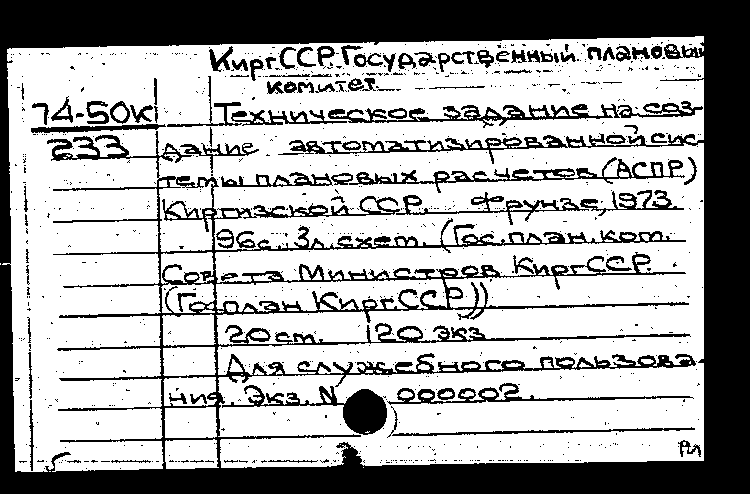 Кирг.ССР. Государственный плановый
комитет
74-50к Техническое задание на соз-
233 дание автоматизированной сис-
темы плановых расчетов (АСПР)
Киргизской ССР. Фрунзе, 1973.
96с.; 3л.схем. (Гос.план.ком.
Совета Министров КиргССР.
(Госплан Кирг.ССР))
20 cm. 120 экз
Для служебного пользова-
ния. Экз. N 000002.